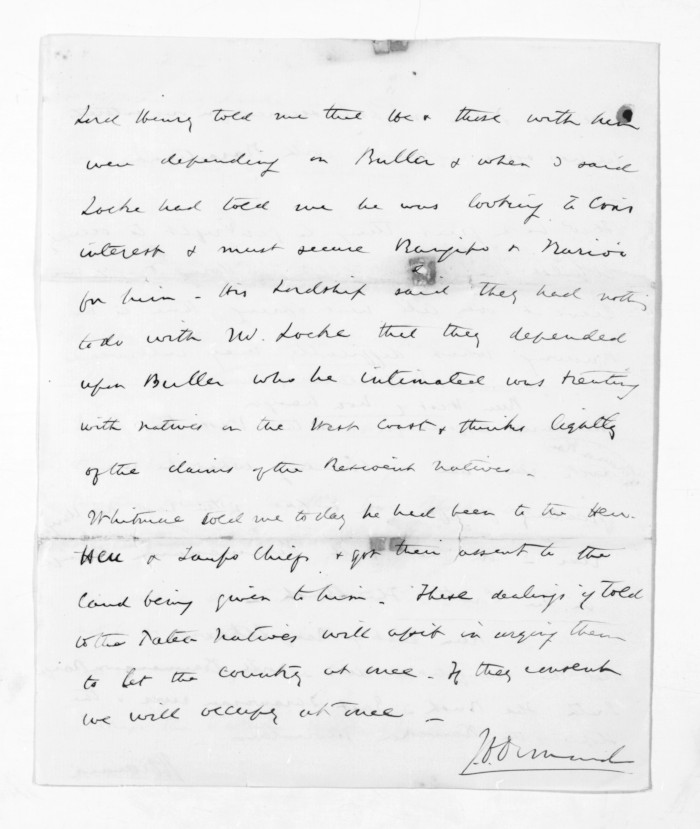 Lord Henry told me that He & those with him
were depending on Buller & when I said
Locke had told me he was looking to Cons
interest & must secure Rangito & Karioi
for him - His Lordship said they had nothing
to do with Mr. Locke that they depended
upon Buller who he intimated was treating
with natives on the West Coast & thinks lightly
of the claims of the Resident natives -
Whitmore told me today he had been to the Heu
Heu & Taupo Chiefs & got their assent to the
land being given to him. These dealings if told
to the Patea Natives will assist in urging them
to let the country at once. If they consent
we will occupy at once -
J.D. Ormond